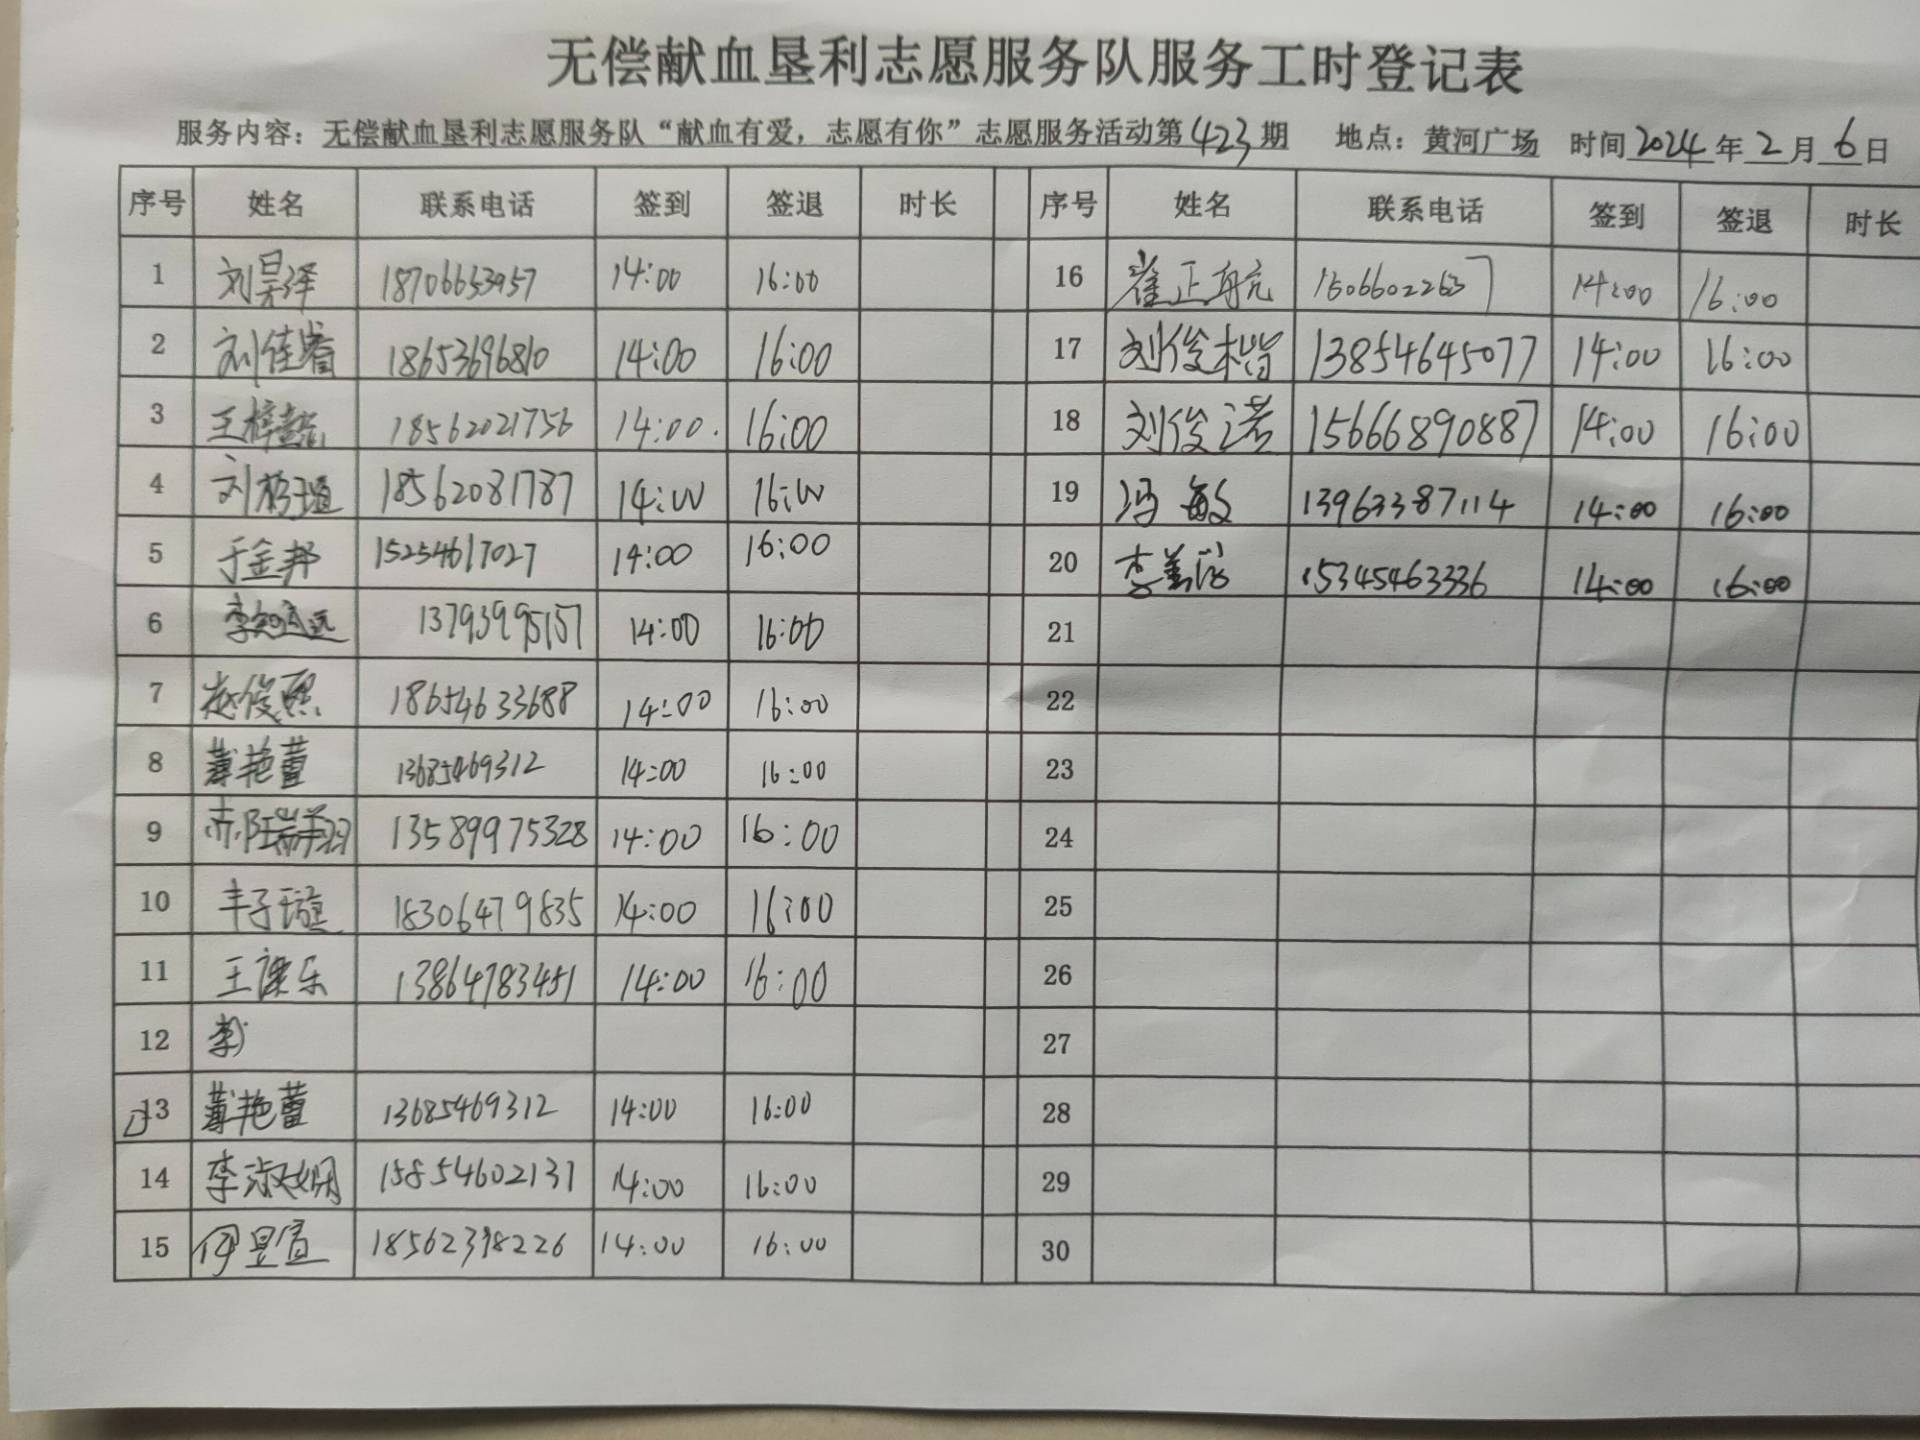 无偿献血垦利志愿服务队服务工时登记表
服务内容：无偿献血垦利志愿服务队“献血有爱，志愿有你”志愿服务活动第423期 地点：黄河广场 时间2024年2月6日
序号 姓名 联系电话 签到 签退 时长 序号 姓名 联系电话 签到 签退 时长
1 刘昊泽 18706653957 14:00 16:00 16 崔正航 14:00 16:00
2 刘佳睿 18653696810 14:00 16:00 17 刘俊楷 13854645077 14:00 16:00
3 王梓懿 18562021756 14:00. 16:00 18 刘俊诺 15666890887 14:00 16:00
4 刘 18562081787 14:00 16:00 19 冯敏 13963387114 14:00 16:00
5 于金邦 15254617027 14:00 16:00 20 李美 15345463336 14:00 16:00
6 李 13793995157 14:00 16:00 21
7 赵俊熙 18654633688 14:00 16:00 22
8 薄艳蕾 13685469312 14:00 16:00 23
9 13589975328 14:00 16:00 24
10 丰子璇 18306479835 14:00 16:00 25
11 王 乐 13864783451 14:00 16:00 26
12 李 27
13 薄艳蕾 13685469312 14:00 16:00 28
14 李淑娴 15854602131 14:00 16:00 29
15 伊昱宣 18562398226 14:00 16:00 30